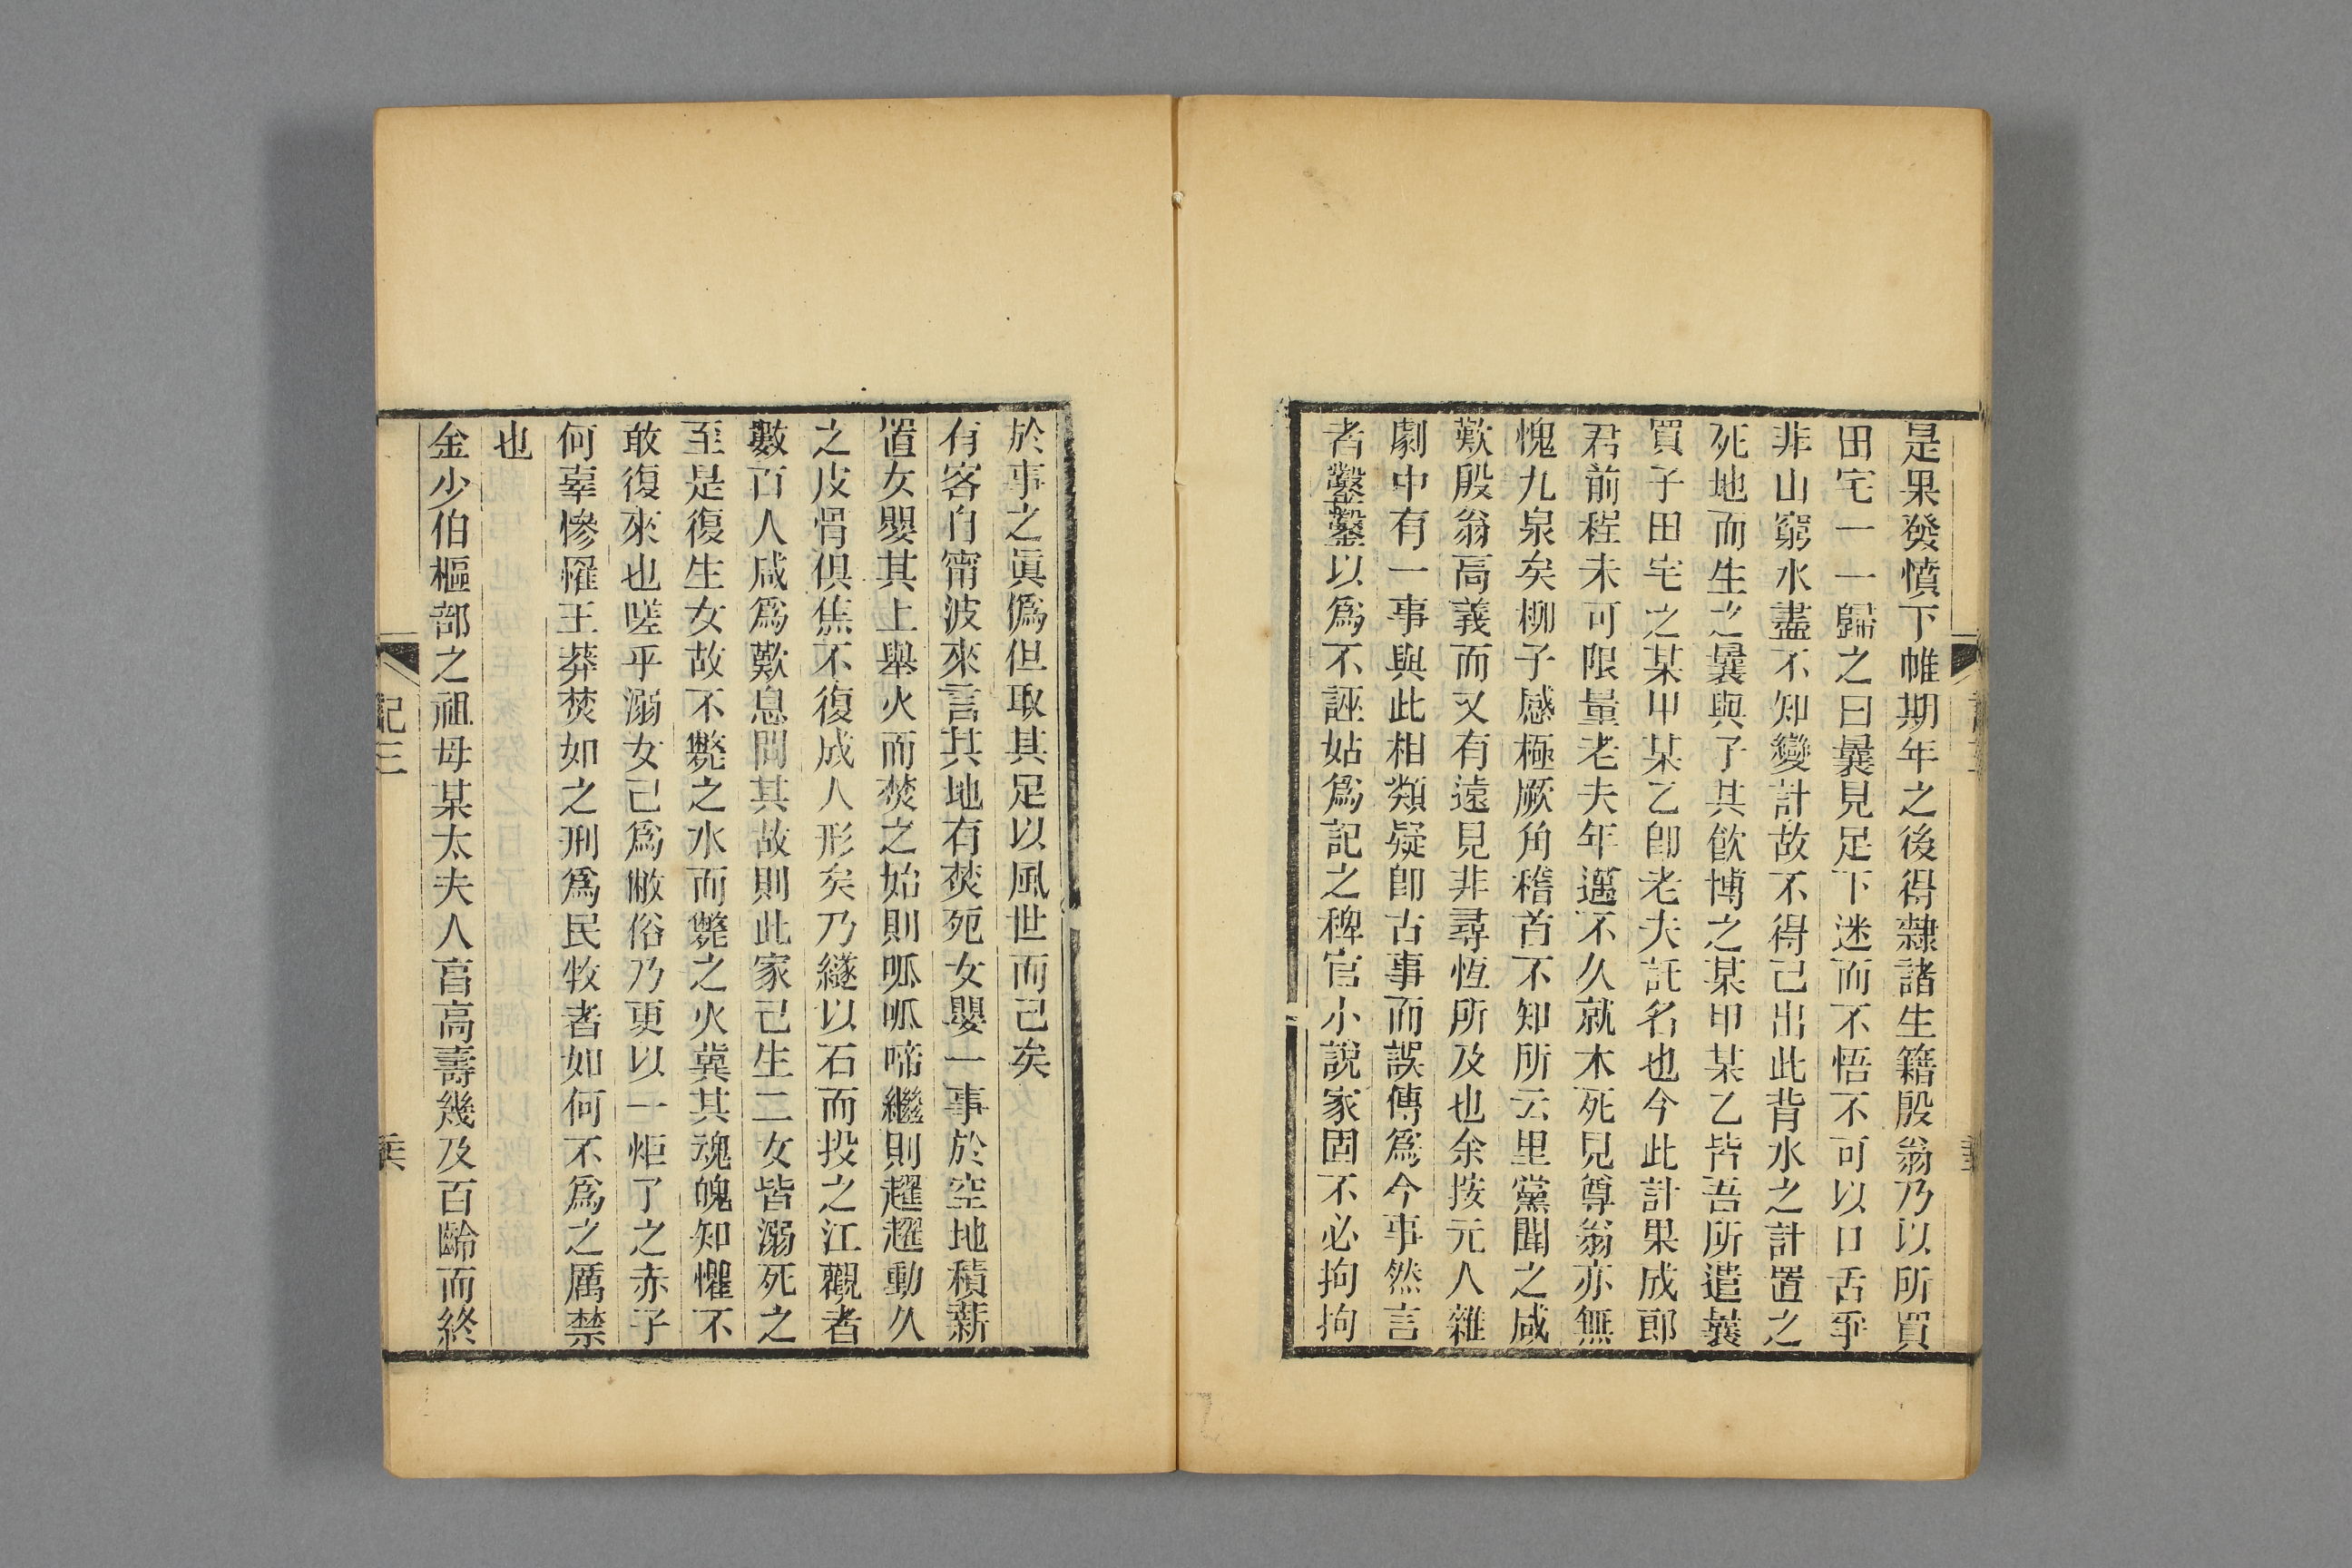 是果發憤下帷期年之後得隸諸生籍殷翁乃以所買
田宅一一歸之曰曩見足下迷而不悟不可以口舌爭
非山窮水盡不知變計故不得已出此背水之計置之
死地而生之曩與了其飮博之某甲某乙皆吾所遣曩
買子田宅之某甲某乙卽老夫託名也今此計果成郎
君前程未可限量老夫年邁不久就木死見尊翁亦無
愧九泉矣柳子感極厥角稽首不知所云里黨聞之咸
歎殷翁高義而又有遠見非尋恆所及也余按元人雜
劇中有一事與此相類疑卽古事而誤傳爲今事然言
者鑿鑿以爲不誣姑爲記之稗官小說家固不必拘拘
於事之眞僞但取其足以風世而已矣
有客自甯波來言其地有焚死女嬰一事於空地積薪
置女嬰其上舉火而焚之始則呱呱啼繼則趯趯動久
之皮骨俱焦不復成人形矣乃縋以石而投之江觀者
數百人咸爲歎息問其故則此家已生二女皆溺死之
至是復生女故不斃之水而斃之火冀其魂魄知懼不
敢復來也嗟乎溺女已爲敝俗乃更以一炬了之赤子
何辜慘罹王莽焚如之刑爲民牧者如何不爲之厲禁
也
金少伯樞部之祖母某太夫人官高壽幾及百齡而終
記三